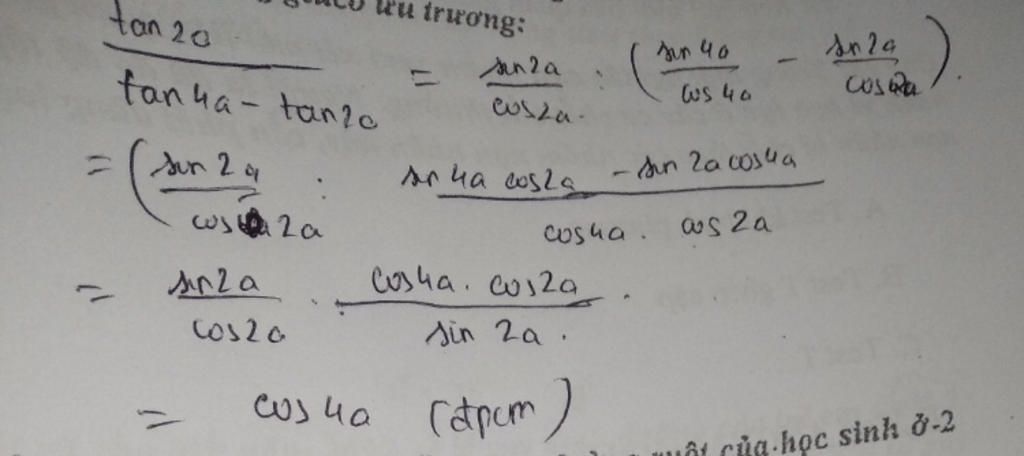 ưu trương:
tan2a / (tan4a - tan2a) = sin2a / cos2a . : ( sin4a / cos4a - sin2a / cos2a ).
= ( sin2a / cos2a : (sin4a cos2a - sin2a cos4a) / (cos4a . cos2a)
= sin2a / cos2a . (cos4a . cos2a) / sin2a . .
= cos4a (đpcm)
của học sinh ở-2